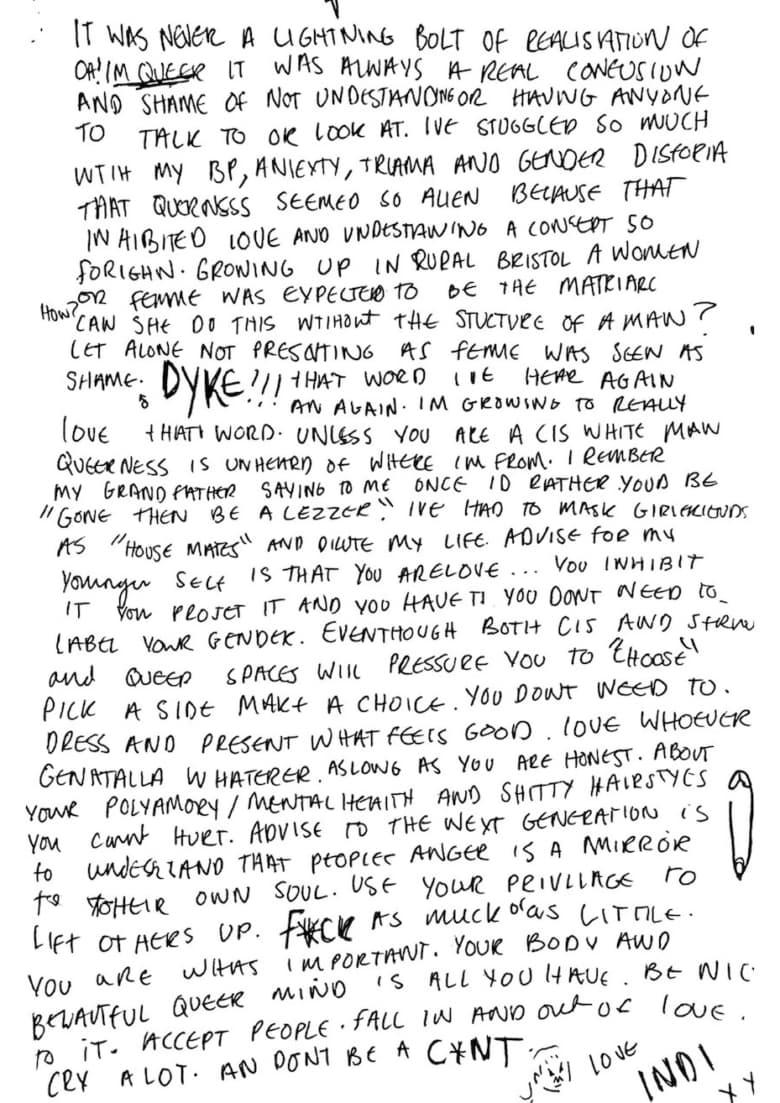 IT WAS NEVER A LIGHTNING BOLT OF REALISATION OF
OH! IM QUEER IT WAS ALWAYS A REAL CONFUSION
AND SHAME OF NOT UNDESTANDING OR HAVING ANYONE
TO TALK TO OR LOOK AT. IVE STUGGLED SO MUCH
WTIH MY BP, ANIEXTY, TRUAMA AND GENDER DISFORIA
THAT QUERNSSS SEEMED SO ALIEN BECAUSE THAT
INHIBITED LOVE AND UNDESTANING A CONSEPT SO
FORIGHN. GROWING UP IN RURAL BRISTOL A WOMEN
OR FEMME WAS EXPECTED TO BE THE MATRIARC
HOW? CAN SHE DO THIS WTIHOUT THE STUCTURE OF A MAN?
LET ALONE NOT PRESENTING AS FEMME WAS SEEN AS
SHAME. DYKE!!! THAT WORD IVE HEAR AGAIN
AN AGAIN. IM GROWING TO REALLY
LOVE THAT WORD. UNLESS YOU ARE A CIS WHITE MAN
QUEERNESS IS UNHEARD OF WHERE IM FROM. I REMBER
MY GRANDFATHER SAYING TO ME ONCE ID RATHER YOUD BE
"GONE THEN BE A LEZZER". IVE HAD TO MASK GIRLFRIENDS
AS "HOUSE MATES" AND DILUTE MY LIFE. ADVISE FOR MY
Younger SELF IS THAT YOU ARE LOVE... YOU INHIBIT
IT YOU PROJET IT AND YOU HAVE TI YOU DONT NEED TO
LABEL YOUR GENDER. EVENTHOUGH BOTH CIS AND
and QUEER SPACES WILL PRESSURE YOU TO "CHOOSE"
PICK A SIDE MAKE A CHOICE. YOU DONT NEED TO.
DRESS AND PRESENT WHAT FEELS GOOD. LOVE WHOEVER
GENATALLA WHATERER. ASLONG AS YOU ARE HONEST. ABOUT
YOUR POLYAMORY / MENTAL HEALTH AND SHITTY HAIRSTYES
YOU CANNT HURT. ADVISE TO THE NEXT GENERATION IS
to UNDESTAND THAT PEOPLES ANGER IS A MIRROR
to THEIR OWN SOUL. USE YOUR PRIVLLAGE TO
LIFT OTHERS UP. F*CK AS MUCK or as LITTLE.
YOU ARE WHAS IMPORTANT. YOUR BODY AND
BEUAUTFUL QUEER MIND IS ALL YOU HAVE. BE NIC
TO IT. ACCEPT PEOPLE. FALL IN AND OUT OF LOVE.
CRY A LOT. AN DONT BE A C*NT LOVE
INDI
X Y